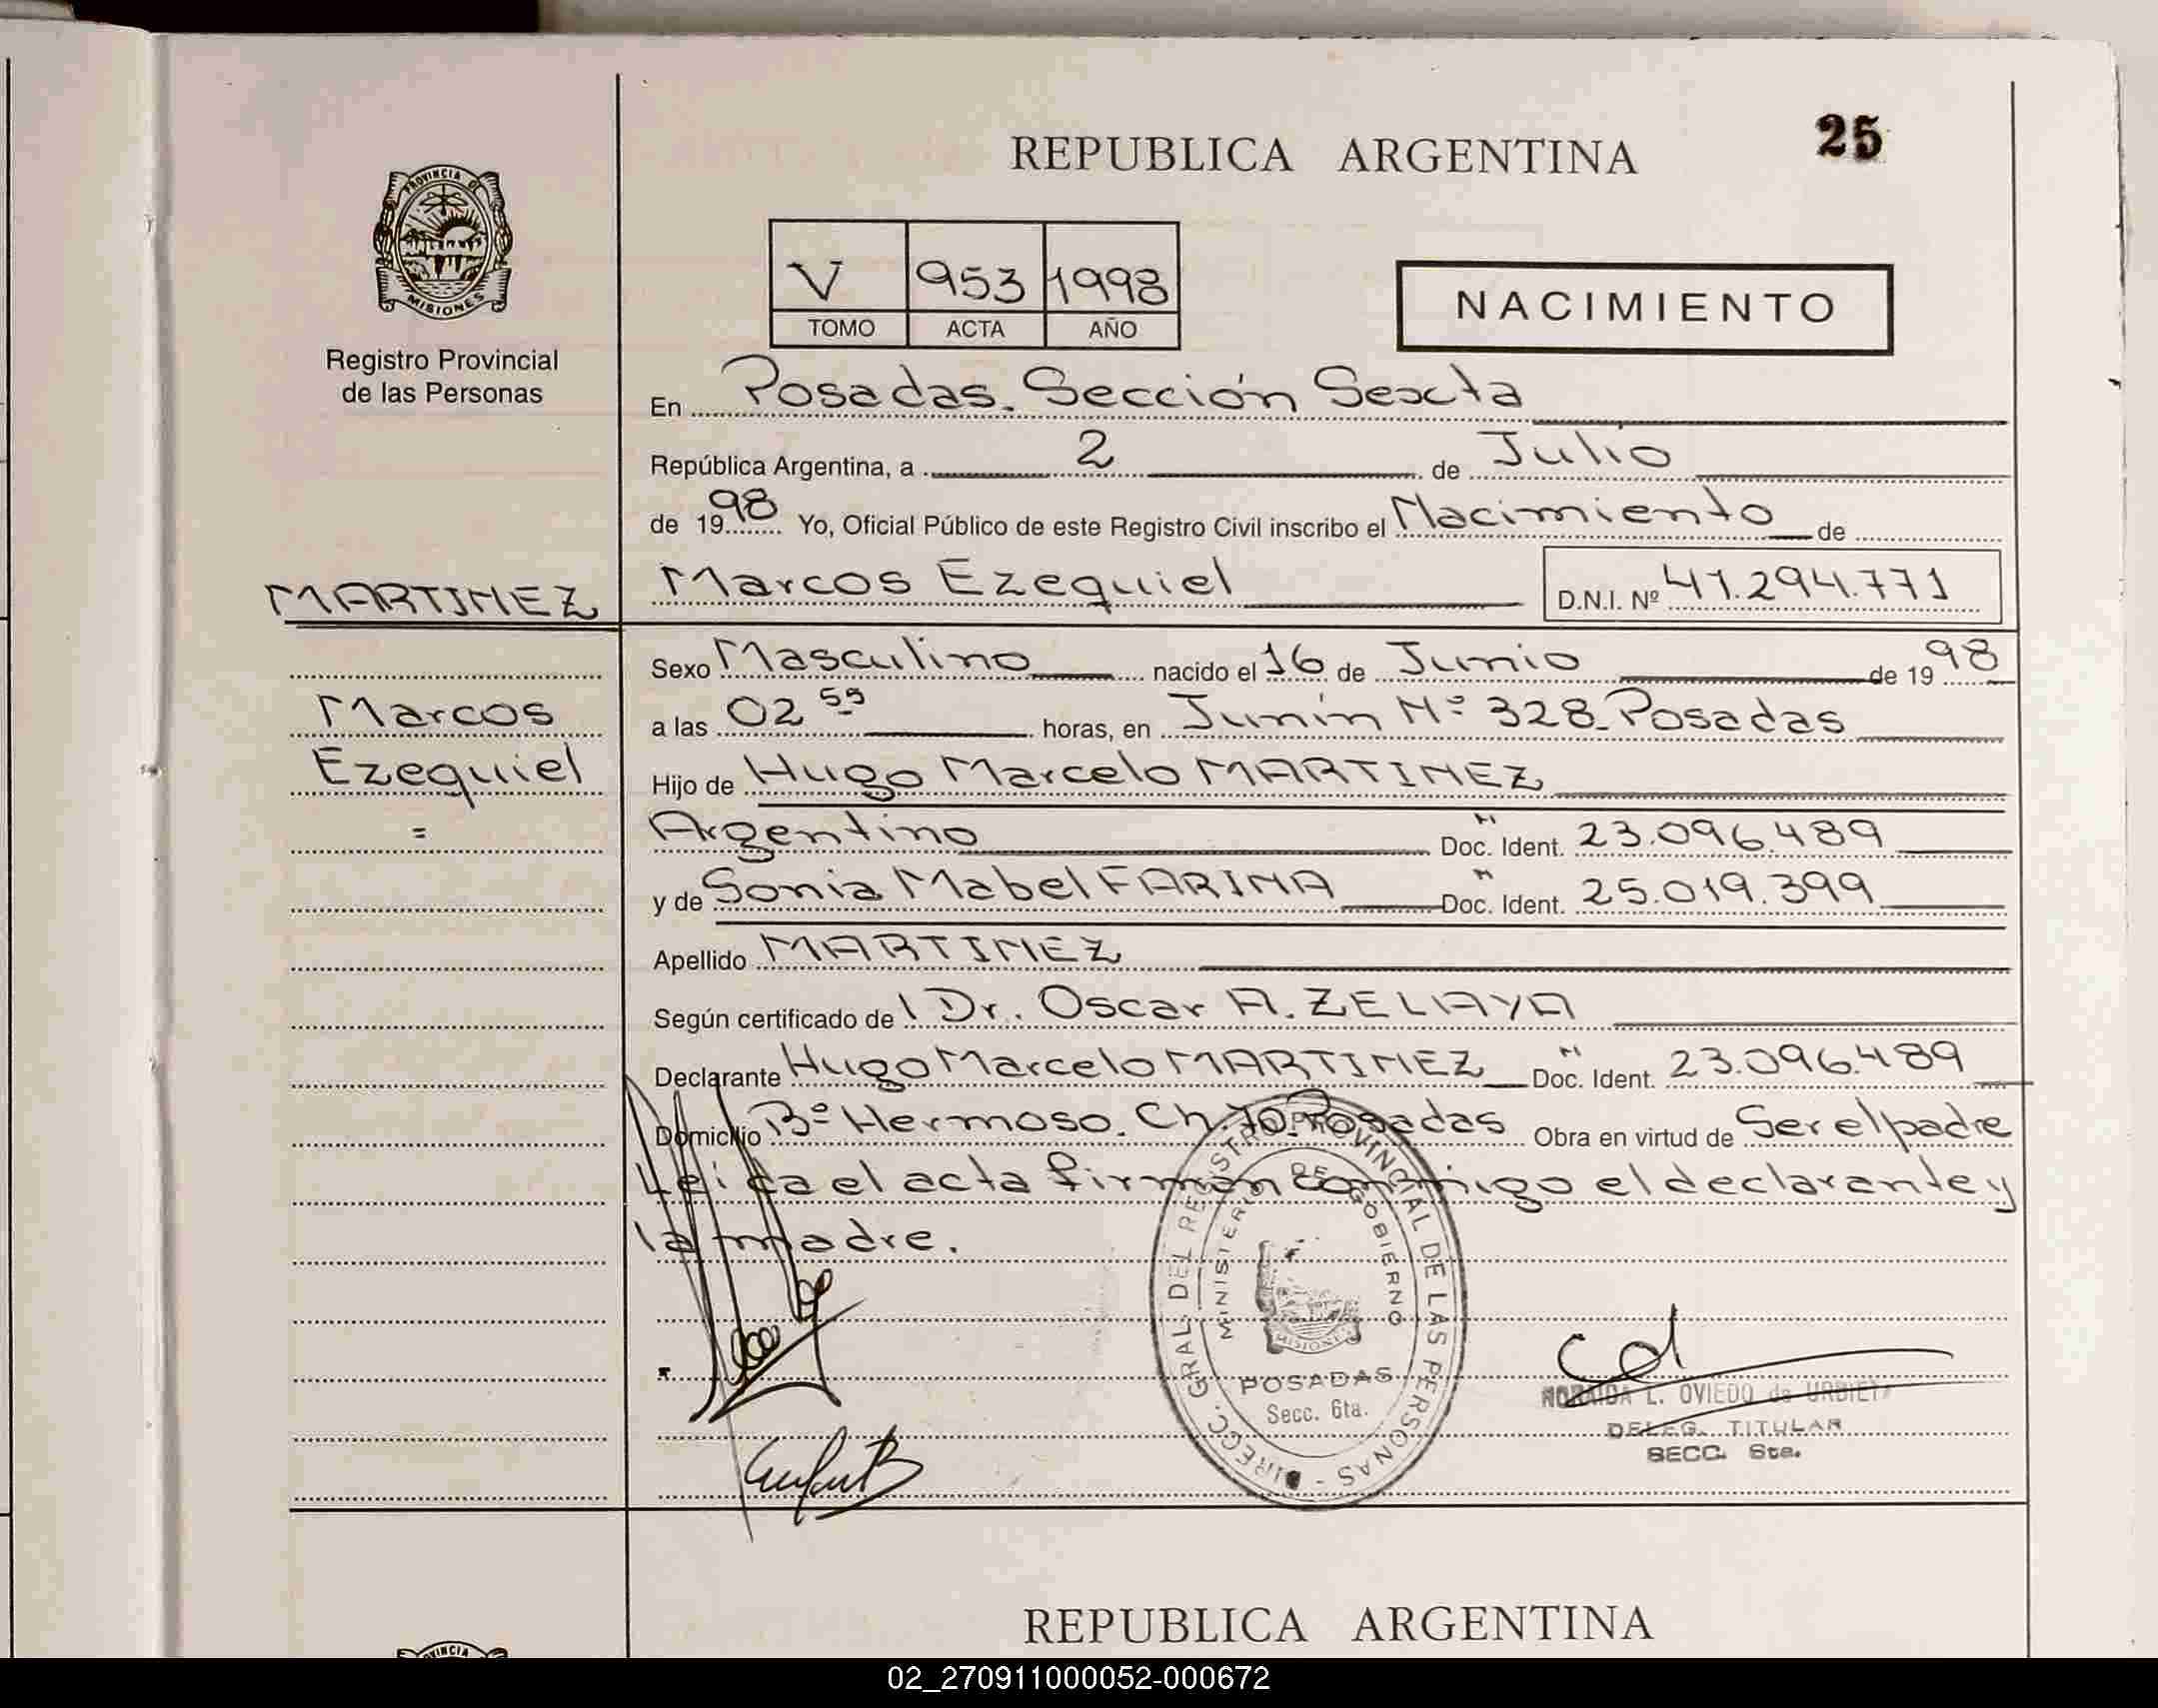 25
REPUBLICA ARGENTINA
PROVINCIA DE
MISIONES
Registro Provincial
de las Personas
V 953 1998
TOMO ACTA AÑO
NACIMIENTO
En Posadas. Sección Sexta
República Argentina, a 2 de Julio
de 1998 Yo, Oficial Público de este Registro Civil inscribo el Nacimiento de
MARTINEZ
Marcos Ezequiel D.N.I. Nº 41.294.771
Sexo Masculino nacido el 16 de Junio de 1998
Marcos
a las 02 55 horas, en Junín Nº 328_Posadas
Ezequiel
Hijo de Hugo Marcelo MARTINEZ
=
Argentino Doc. N Ident. 23.096.489
y de Sonia Mabel FARINA Doc. N Ident. 25.019.399
Apellido MARTINEZ
Según certificado de l Dr. Oscar A. ZELAYA
Declarante Hugo Marcelo MARTINEZ Doc. N Ident. 23.096.489
Domicilio Bº Hermoso. Ch. Posadas Obra en virtud de Ser el padre
Leida el acta firman conmigo el declarante y
la madre.
DIRECC. GRAL. DEL REGISTRO PROVINCIAL DE LAS PERSONAS -
MINISTERIO DE GOBIERNO
MISIONES
POSADAS
Secc. 6ta.
NORAIDA L. OVIEDO de URBIETA
DELEG. TITULAR
SECC. 6ta.
REPUBLICA ARGENTINA
02_270911000052-000672